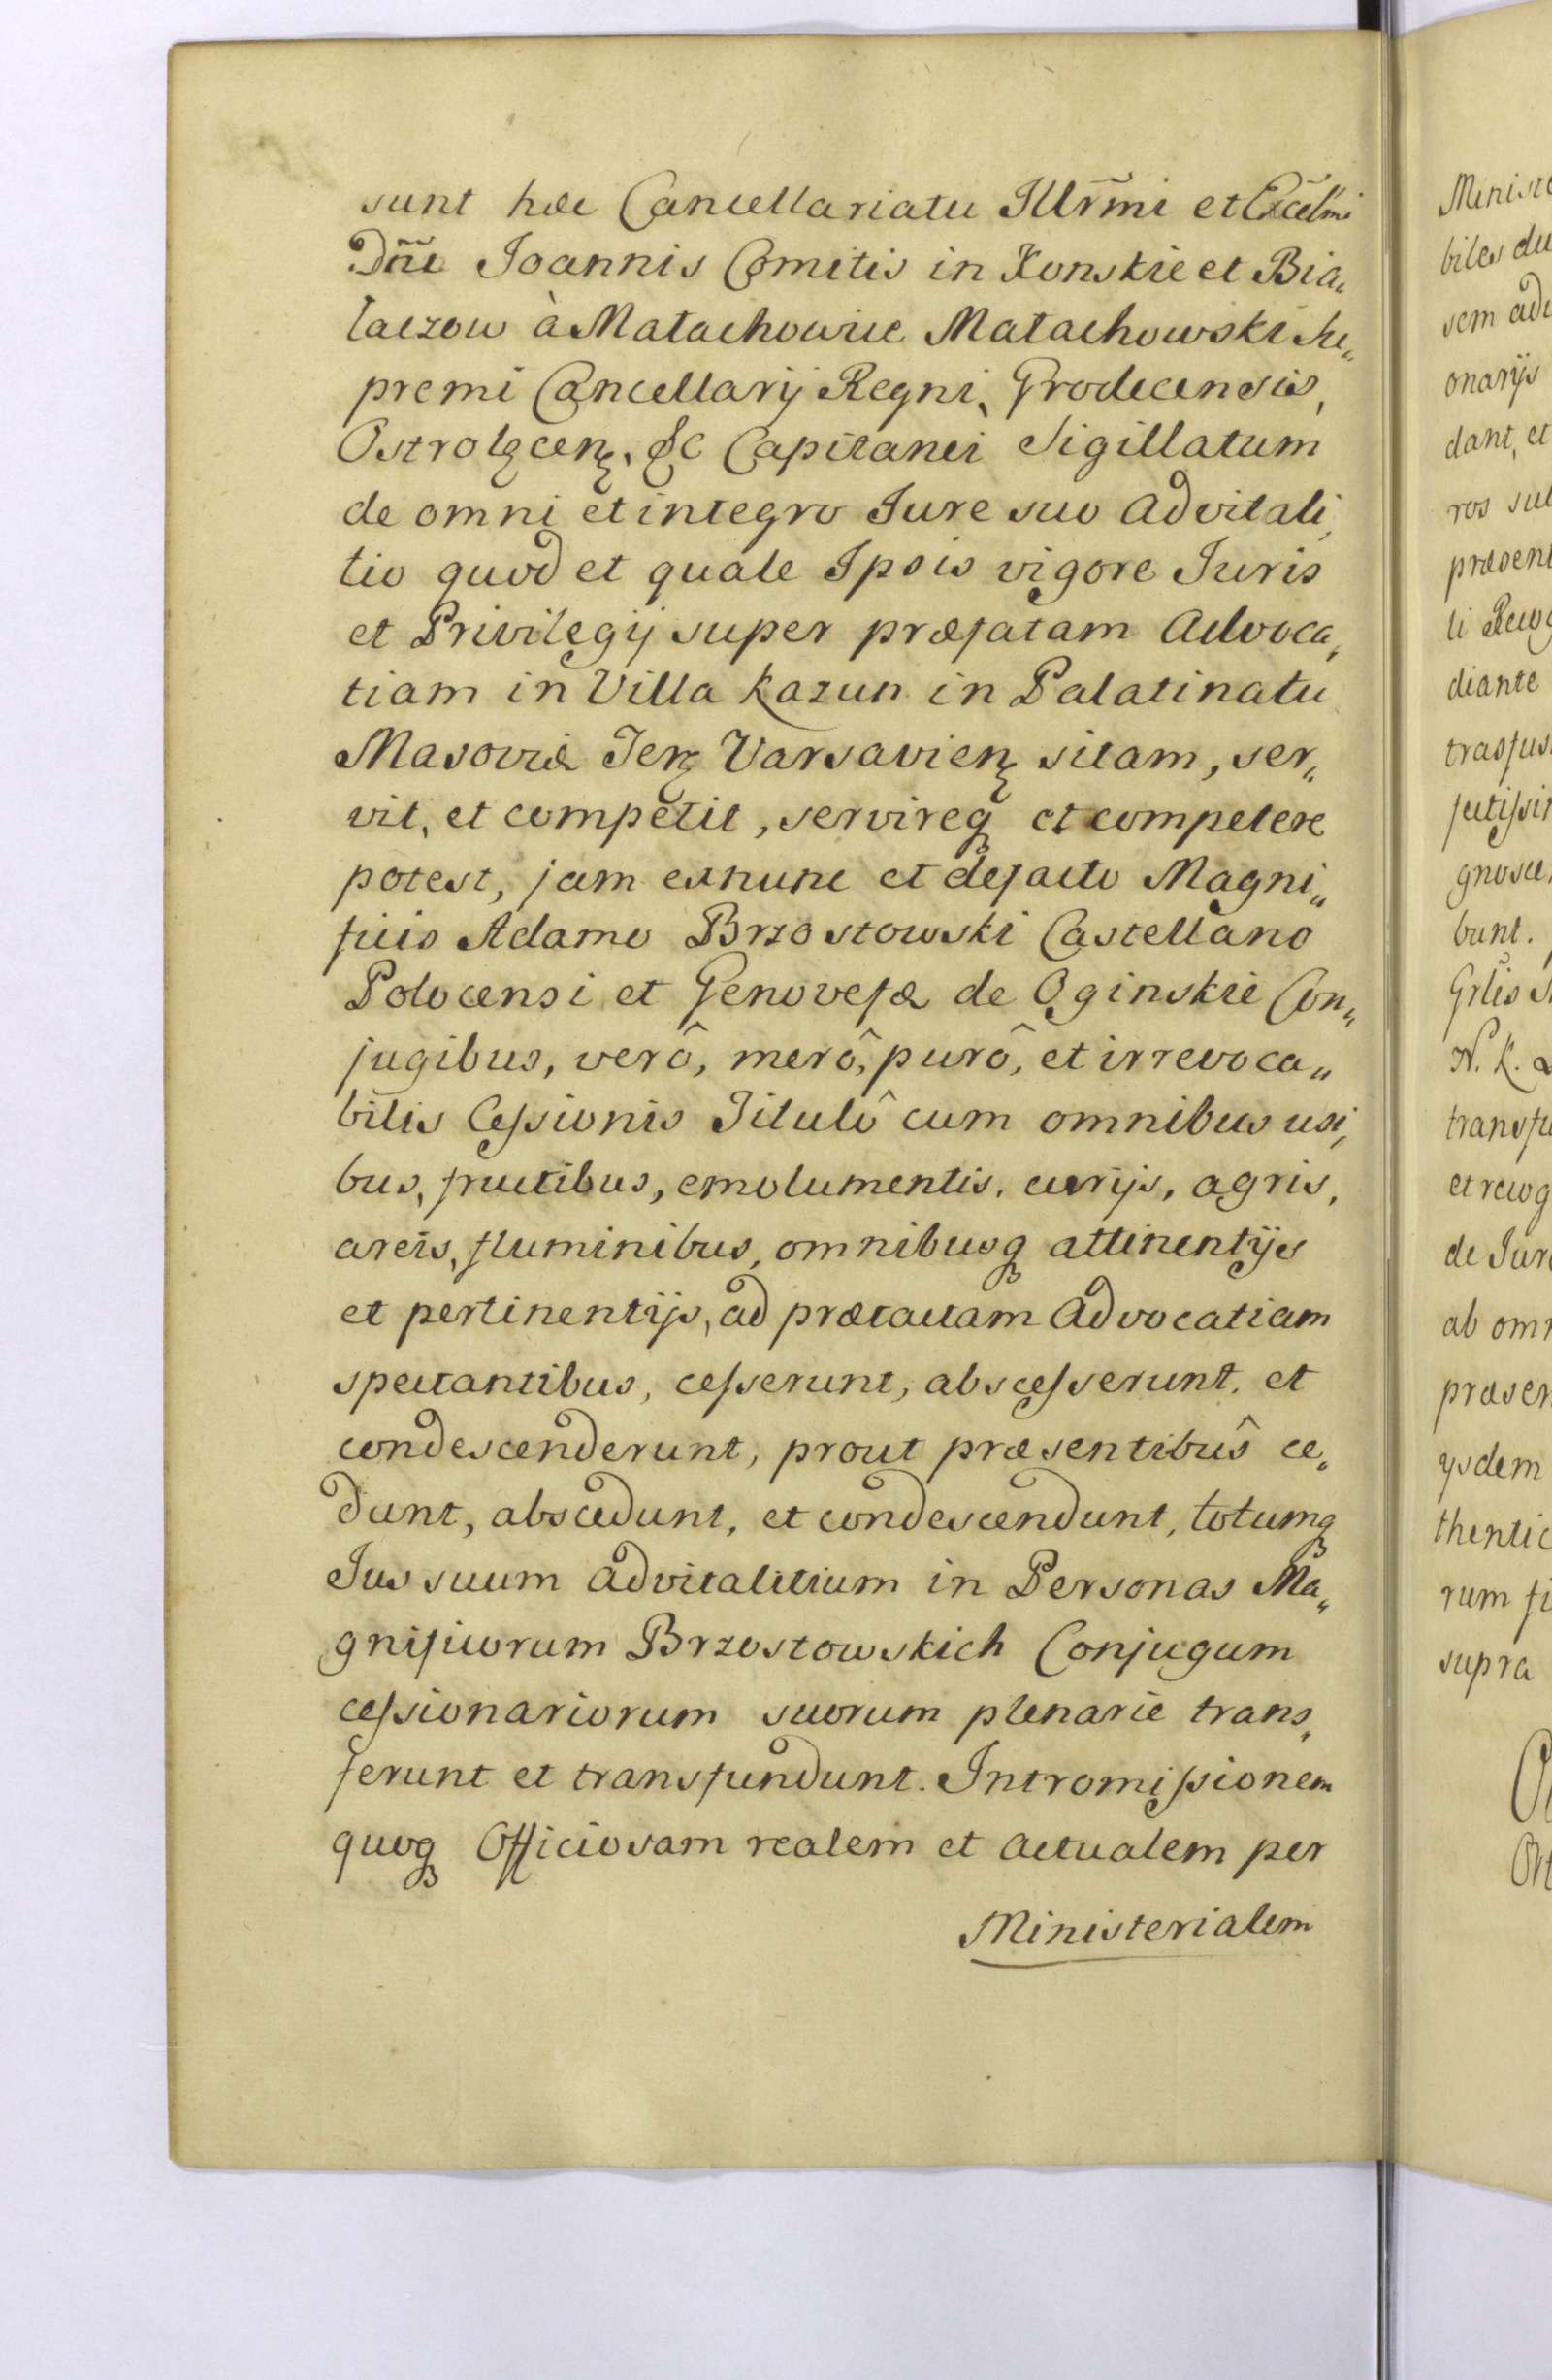 sunt hoc Cancellariatu Illr̃mi et Excel̃mi
Dñi Joannis Comitis in Konskie et Bia„
łaczow à Małachowice Małachowski Su„
premi Cancellarij Regni, Grodecensis,
Ostrolęcen̨. &c Capitanei Sigillatum
de omni et integro Jure suo advitali„
tio quod et quale Ipsis vigore Juris
et Privilegij super præfatam Advoca„
tiam in Villa Kazun in Palatinatu
Masoviæ Terꝫ Varsavien̨ sitam, ser„
vit, et competit, servireqꝫ et competere
potest, jam exnunc et defacto Magni„
ficis Adamo Brzostowski Castellano
Polocensi et Genovefæ de Oginskie Con„
jugibus, verô, merô, purô, et irrevoca„
bilis Cessionis Titulô cum omnibus usi„
bus, fructibus, emolumentis, curijs, agris,
areis, fluminibus, omnibusqꝫ attinentijs
et pertinentijs, ad prætactam Advocatiam
spectantibus, cesserunt, abscesserunt, et
condescenderunt, prout præsentibûs ce„
dunt, abscedunt, et condescendunt, totumqꝫ
Jus suum advitalitium in Personas Ma„
gnificorum Brzostowskich Conjugum
cessionariorum suorum plenarie trans„
ferunt et transfundunt. Intromissionem
quoqꝫ Officiosam realem et actualem per
Ministerialem